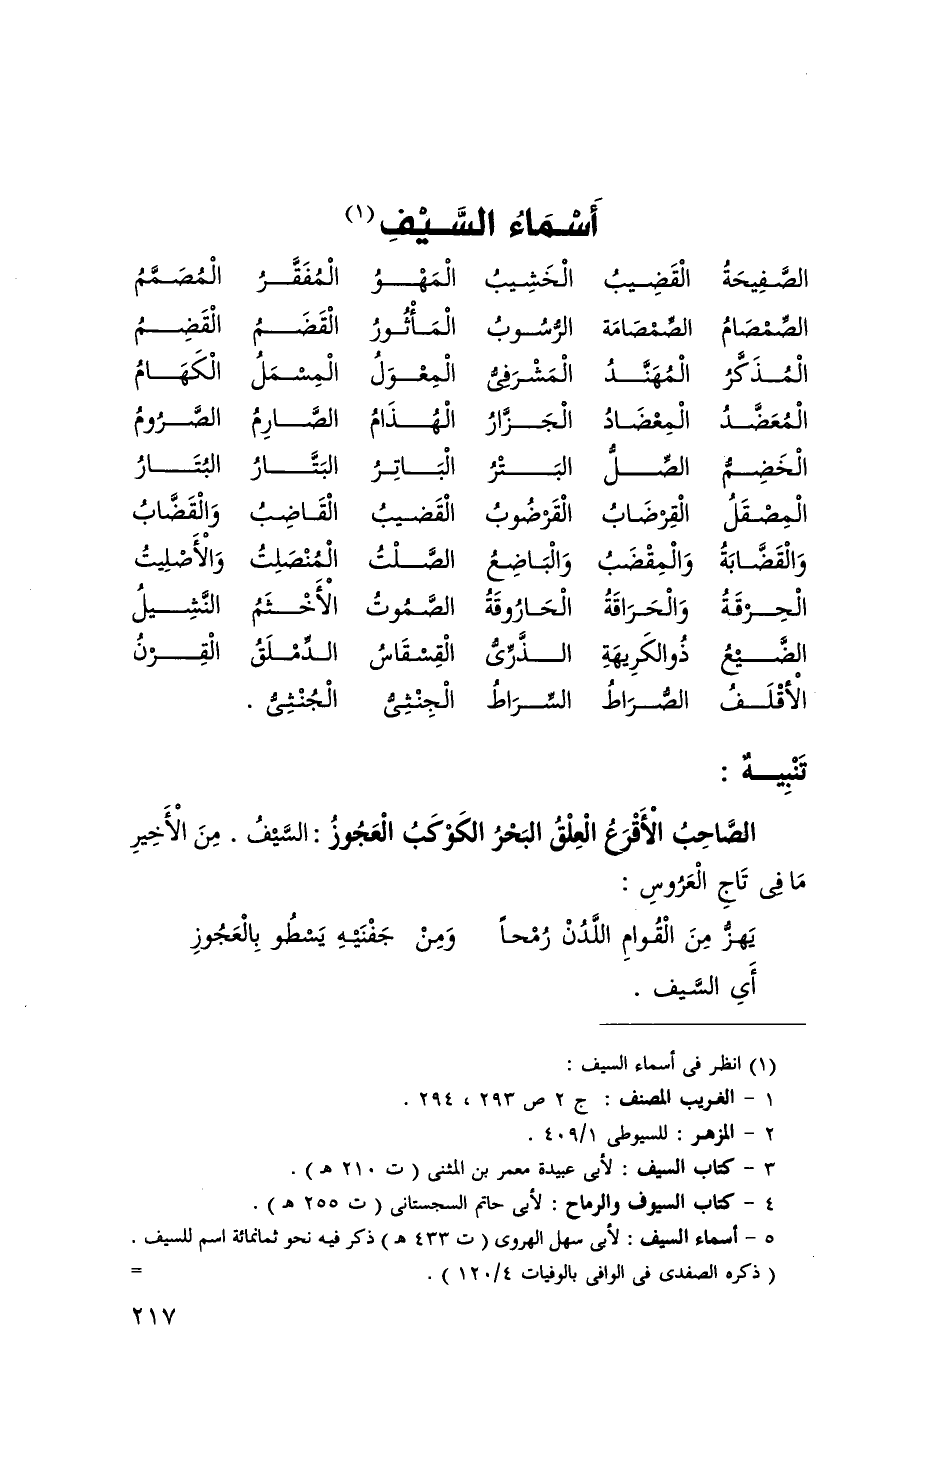 أَسْمَاءُ السَّيْفِ (١)
الصَّفِيحَةُ الْقَضِيبُ الْخَشِيبُ الْمَهْوُ الْمُفَقَّرُ الْمُصَمَّمُ
الصَّمْصَامُ الصَّمْصَامَة الرَّسُوبُ الْمَأْثُورُ الْقَضَمُ الْقَضِمُ
الْمُذَكَّرُ الْمُهَنَّدُ الْمَشْرَفِىُّ الْمِعْوَلُ الْمِسْمَلُ الْكَهَامُ
الْمُعَضَّدُ الْمِعْضَادُ الْجَزَّارُ الْهُذَامُ الصَّارِمُ الصَّرُومُ
الْخَضِمُّ الصِّلُّ البَتْرُ الْبَاتِرُ البَتَّارُ البُتَارُ
الْمِصْقَلُ الْقِرْضَابُ الْقَرْضُوبُ الْقَضيبُ الْقَاضِبُ وَالْقَضَّابُ
وَالْقَضَّابَةُ وَالْمِقْضَبُ وَالْبَاضِعُ الصَّلْتُ الْمُنْصَلِتُ وَالْأَصْلِيتُ
الْحِرْقَةُ وَالْحَرَاقَةُ الْحَارُوقَةُ الصَّمُوتُ الْأَخْثَمُ النَّشِيلُ
الضَّيْعُ ذُوالكَرِيهَةِ الذَّرِّىُّ الْقِسْقَاسُ الدِّمْلَقُ الْقِرْنُ
الْأَقْلَفُ الصُّرَاطُ السِّرَاطُ الْجِنْثِىُّ الْجُنْثِىُّ .
تَنْبِيهٌ :
الصَّاحِبُ الْأَقْرَعُ الْعِلْقُ البَحْرُ الكَوْكَبُ الْعَجُوزُ : السَّيْفُ . مِنَ الْأَخِيرِ
مَا فِى تَاجِ الْعَرُوسِ :
يَهزُّ مِنَ الْقُوامِ اللَّدُنْ رُمْحاً وَمِنْ جَفْنَيْهِ يَسْطُو بِالْعَجُوزِ
أَيِ السَّيف .
(١) انظر فى أسماء السيف :
١ - الغريب المصنف : ج ٢ ص ٢٩٣ ، ٢٩٤ .
٢ - المزهر : للسيوطى ٤٠٩/١ .
٣ - كتاب السيف : لأبى عبيدة معمر بن المثنى ( ت ٢١٠ هـ ) .
٤ - كتاب السيوف والرماح : لأبى حاتم السجستانى ( ت ٢٥٥ هـ ) .
٥ - أسماء السيف : لأبى سهل الهروى ( ت ٤٣٣ هـ ) ذكر فيه نحو ثمانمائة اسم للسيف .
( ذكره الصفدى فى الوافى بالوفيات ١٢٠/٤ ) . =
٢١٧